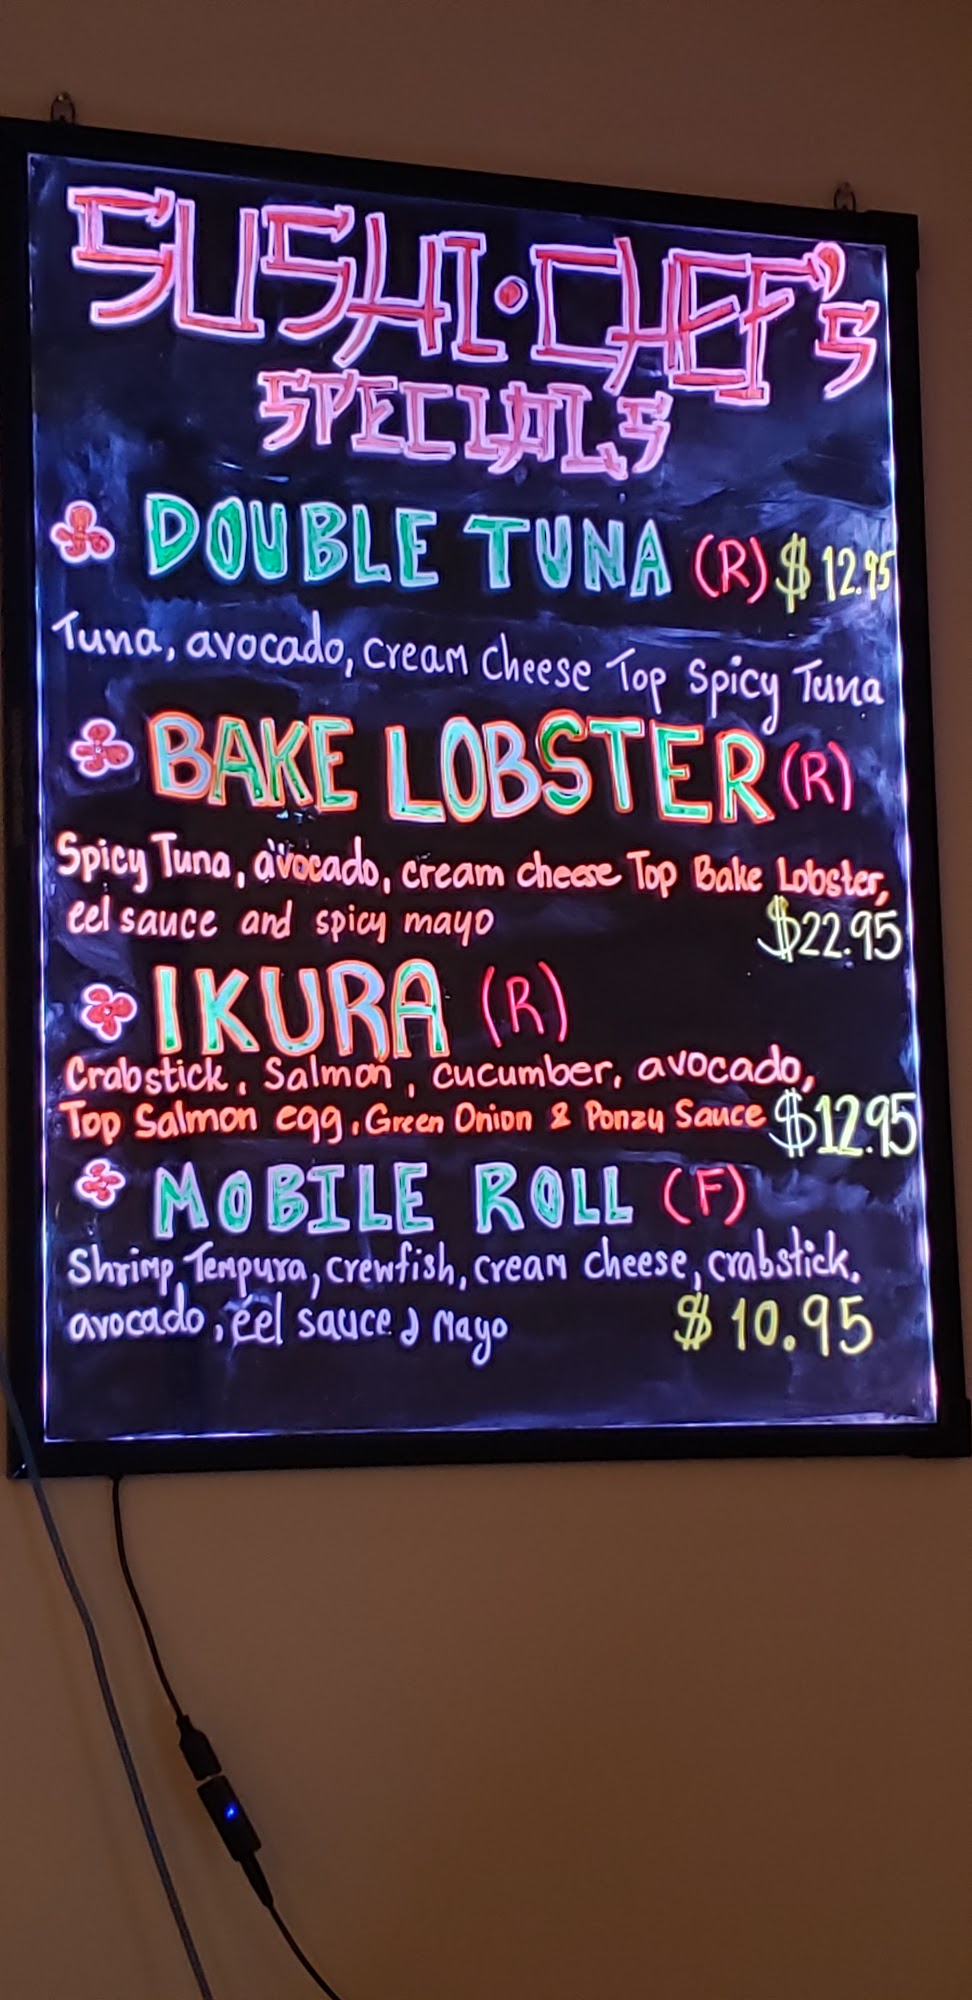 SUSHI·CHEF'S
SPECIALS
DOUBLE TUNA (R) $12.95
Tuna, avocado, cream cheese Top Spicy Tuna
BAKE LOBSTER (R)
Spicy Tuna, avocado, cream cheese Top Bake Lobster,
eel sauce and spicy mayo $22.95
IKURA (R)
Crabstick, Salmon, cucumber, avocado,
Top Salmon egg, Green Onion & Ponzu Sauce $12.95
MOBILE ROLL (F)
Shrimp Tempura, crewfish, cream cheese, crabstick,
avocado, eel sauce, Mayo $10.95